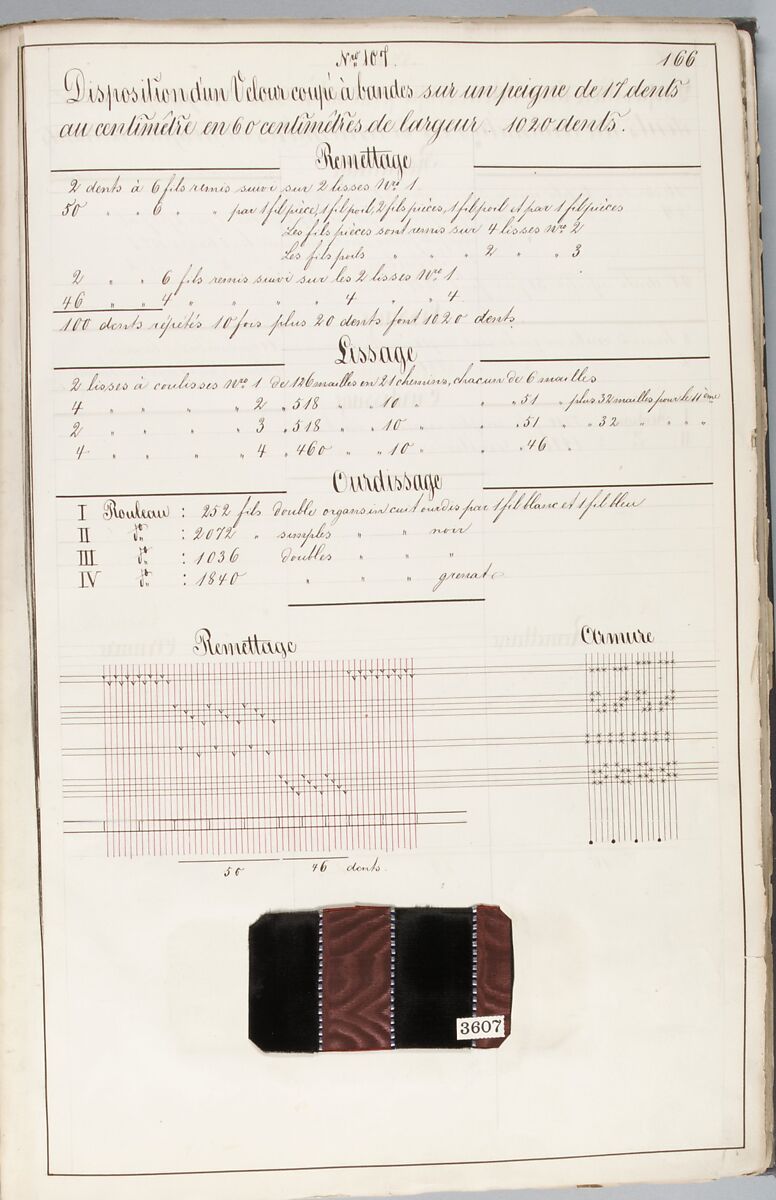 Nro 107.
166
Disposition d'un Velour coupé à bandes sur un peigne de 17 dents
au centimètre en 60 centimètres de largeur. 1020 dents.
Remettage
2 dents à 6 fils remis suivi sur 2 lisses Nro 1
50 " " 6 " " par 1 fil pièce, 1 fil poil, 2 fils pièces, 1 fil poil et par 1 fil pièces
Les fils pièces sont remis sur 4 lisses Nro 2
Les fils poils " " " 2 " " 3
2 " " 6 fils remis suivi sur les 2 lisses Nro 1
46 " " 4 " " " " 4 " " 4
100 dents répétés 10 fois plus 20 dents font 1020 dents.
Lissage
2 lisses à coulisses Nro 1 de 126 mailles en 21 chemins, chacun de 6 mailles
4 " " " " 2 " 518 " " 10 " " " 51 " plus 32 mailles pour le 11ème
2 " " " " 3 " 518 " " 10 " " " 51 " " 32 " " "
4 " " " " 4 " 460 " " 10 " " " 46 "
Ourdissage
I Rouleau : 252 fils double organsin cuit ourdis par 1 fil blanc et 1 fil bleu
II do : 2072 " simples " " noir
III do : 1036 doubles " " "
IV do : 1840 " " " grenat
Remettage
Armure
50
46 dents.
3607